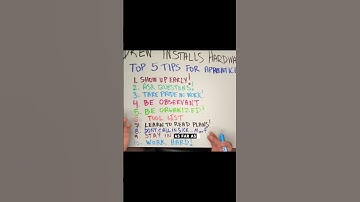 DREW INSTALLS HARDWA
TOP 5 TIPS FOR APPRENTICE
1. SHOW UP EARLY!
2. ASK QUESTIONS!
3. TAKE PRIDE IN WORK!
4. BE OBSERVANT
5. BE ORGANIZED!
TOOL LIST
7. LEARN TO READ PLANS!
8. DONT CALL IN SICK... M or F
9. STAY IN
WORK HARD!